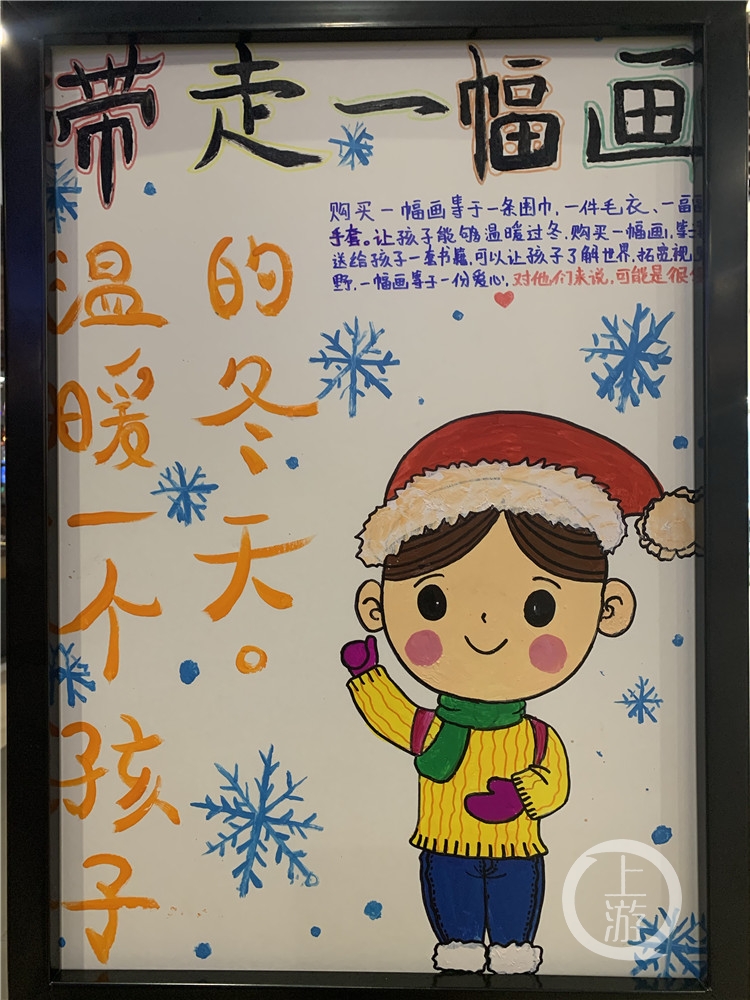 带走一幅画
温暖一个孩子
的冬天。
购买一幅画等于一条围巾,一件毛衣、一副
手套。让孩子能够温暖过冬.购买一幅画,等
送给孩子一套书籍,可以让孩子了解世界.拓宽视
野.一幅画等于一份爱心,对他们来说,可能是很
上游